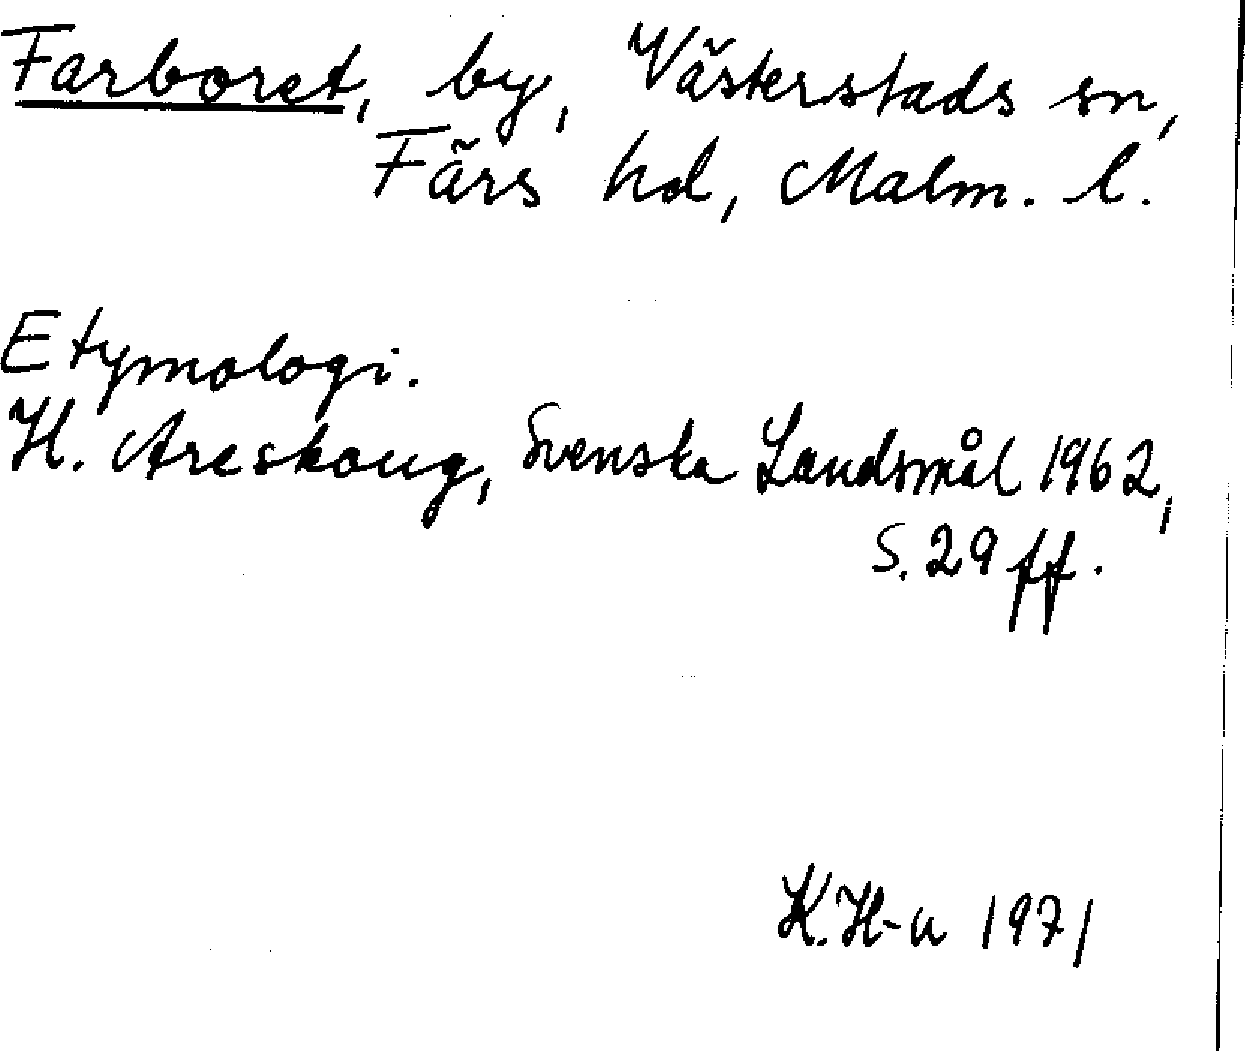 Farboret, by, Västerstads sn,
Färs hd, Malm. l.
Etymologi.
H. Areskoug, Svenska Landsmål 1962,
S. 29 ff.
K. H-n 1971